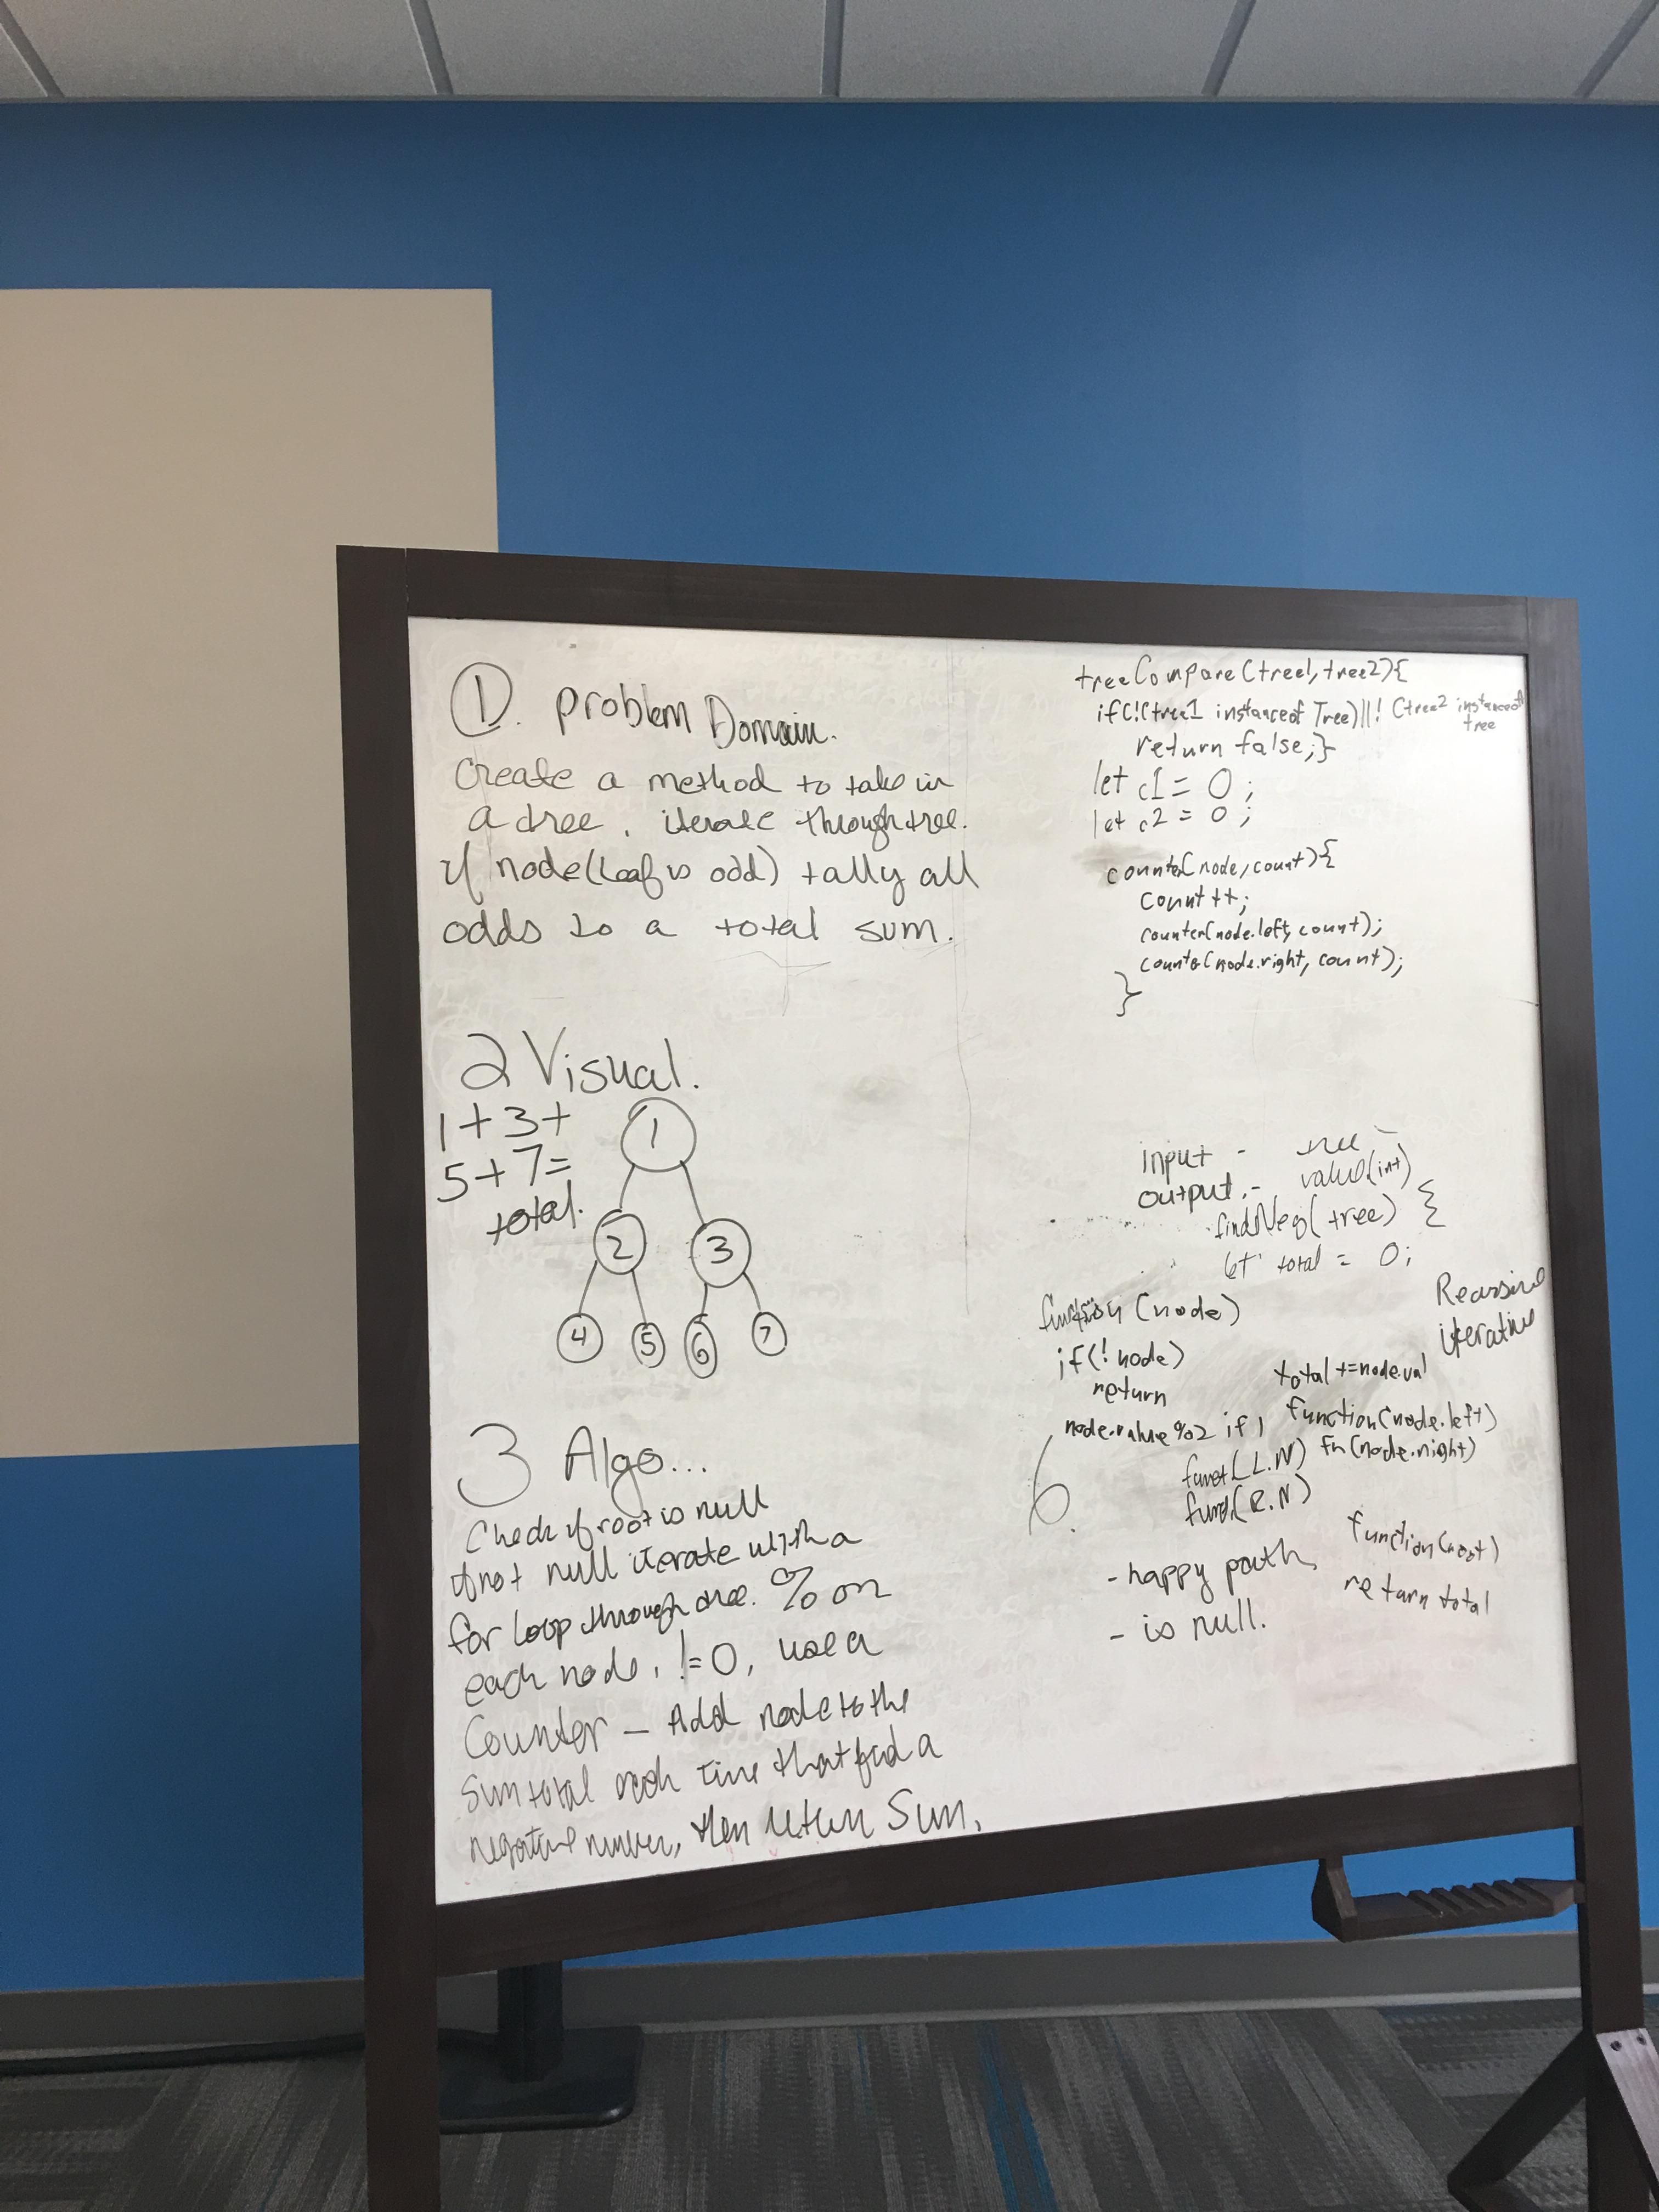 1. Problem Domain.
Create a method to take in
a tree, iterate through tree.
if node(leaf is odd) tally all
odds to a total sum.
2 Visual.
1+3+
5+7=
total.
1
2
3
4
5
6
7
3 Algo...
Check if root is null
if not null iterate with a
for loop through one. % on
each node, !=0, use a
Counter - Add node to the
Sum total each time that find a
negative number, then return Sum,
treeCompare(tree1, tree2){
if(!(tree1 instanceof Tree)||!(tree2 instanceof
tree
return false;}
let c1 = 0;
let c2 = 0;
counter(node, count){
count++;
counter(node.left, count);
counter(node.right, count);
}
input - tree
output - value(int)
findNeg(tree) {
let total = 0;
Recursive
iterative
function(node)
if(!node)
return
total += node.val
node.value % 2 if 1
function(node.left)
funct(L.N) fn(node.right)
funct(R.N)
6.
- happy path,
- is null.
function(root)
return total